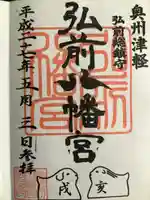 奥州津軽
弘前総鎮守
弘前八幡宮
平成二十七年五月三日参拝
戌
亥